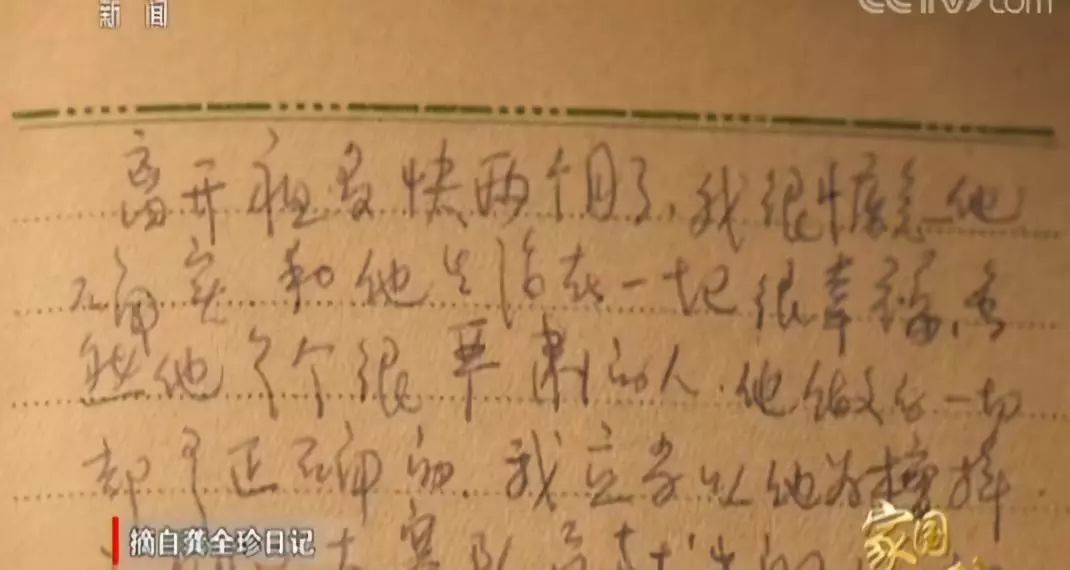 新闻
CCTV.com
离开祖昌快两个月了,我很惦念他
确实和他生活在一起很幸福,虽
然他是个很严肃的人.他做的一切
都是正确的.我应当以他为榜样.
摘自龚全珍日记
家国